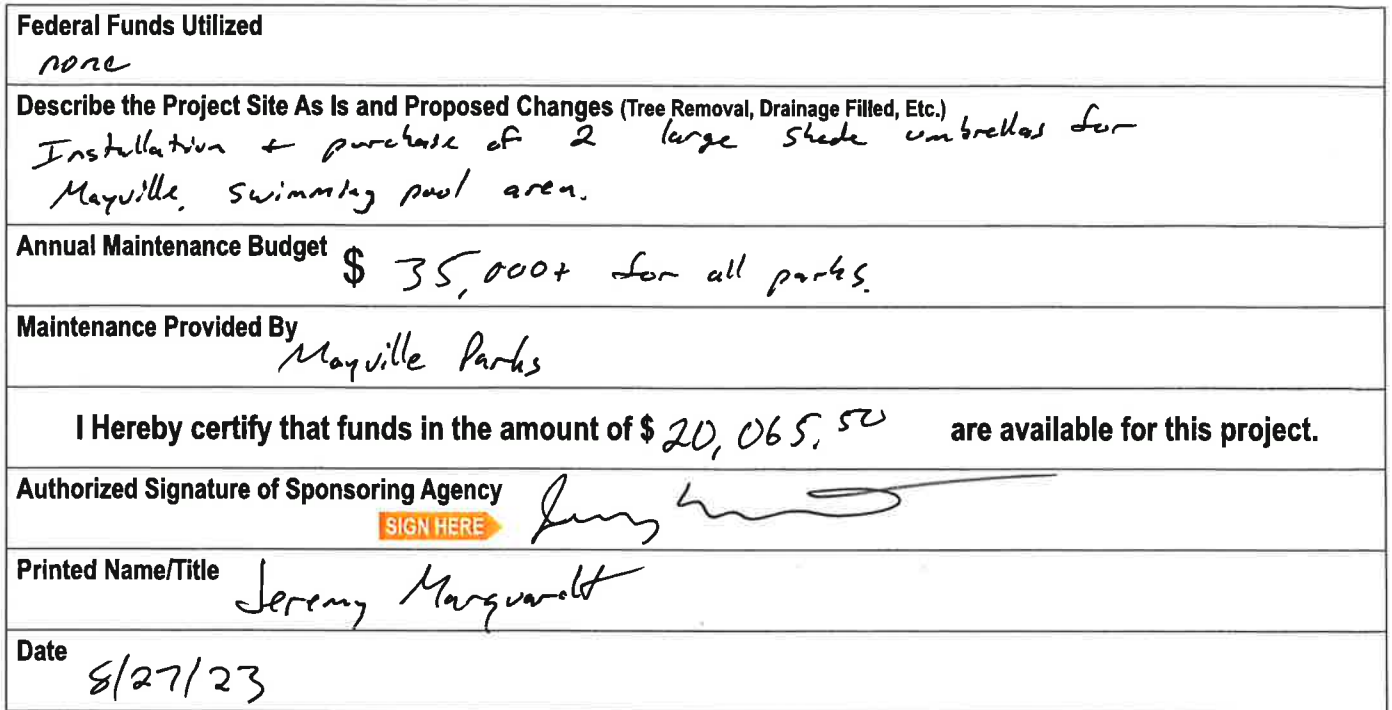 Federal Funds Utilized
none
Describe the Project Site As Is and Proposed Changes (Tree Removal, Drainage Filled, Etc.)
Installation + purchase of 2 large shade umbrellas for
Mayville swimming pool area.
Annual Maintenance Budget $ 35,000+ for all parks.
Maintenance Provided By Mayville Parks
I Hereby certify that funds in the amount of $ 20,065.50 are available for this project.
Authorized Signature of Sponsoring Agency
SIGN HERE
Printed Name/Title Jeremy Marquardt
Date 8/27/23